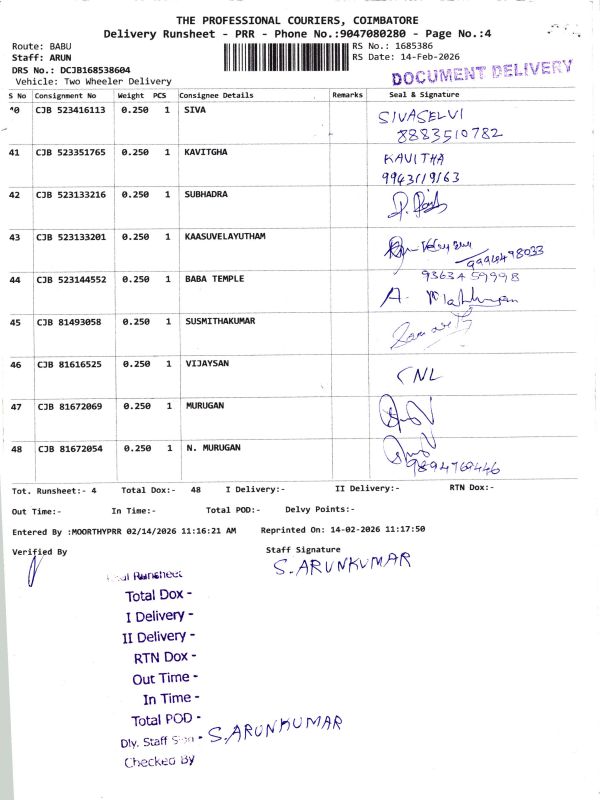 THE PROFESSIONAL COURIERS, COIMBATORE
Delivery Runsheet - PRR - Phone No.:9047080280 - Page No.:4
Route: BABU RS No.: 1685386
Staff: ARUN RS Date: 14-Feb-2026
DRS No.: DCJB168538604
Vehicle: Two Wheeler Delivery
DOCUMENT DELIVERY
S No Consignment No Weight PCS Consignee Details Remarks Seal & Signature
0 CJB 523416113 0.250 1 SIVA SIVASELVI
8883510782
41 CJB 523351765 0.250 1 KAVITGHA KAVITHA
9943119163
42 CJB 523133216 0.250 1 SUBHADRA
43 CJB 523133201 0.250 1 KAASUVELAYUTHAM
44 CJB 523144552 0.250 1 BABA TEMPLE 9363459998
A.
45 CJB 81493058 0.250 1 SUSMITHAKUMAR
46 CJB 81616525 0.250 1 VIJAYSAN CNL
47 CJB 81672069 0.250 1 MURUGAN
48 CJB 81672054 0.250 1 N. MURUGAN
9894760446
Tot. Runsheet:- 4 Total Dox:- 48 I Delivery:- II Delivery:- RTN Dox:-
Out Time:- In Time:- Total POD:- Delvy Points:-
Entered By :MOORTHYPRR 02/14/2026 11:16:21 AM Reprinted On: 14-02-2026 11:17:50
Verified By Staff Signature
S. ARUNKUMAR
Runsheet
Total Dox -
I Delivery -
II Delivery -
RTN Dox -
Out Time -
In Time -
Total POD -
Dly. Staff Sign - S. ARUNKUMAR
Checked By